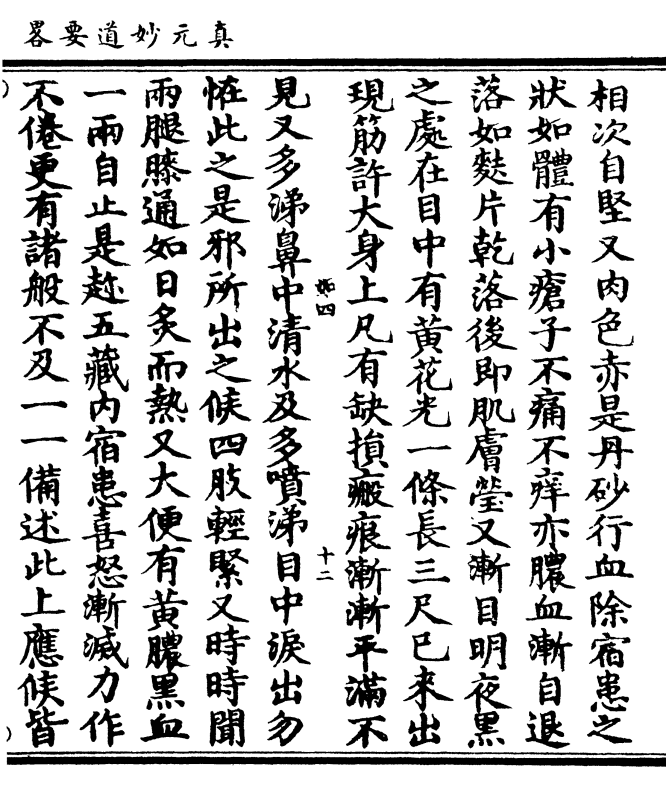 真元妙道要畧
相次自堅又肉色赤是丹砂行血除宿患之
狀如體有小瘡子不痛不痒亦膿血漸自退
落如麩片乾落後即肌膚瑩又漸目明夜黑
之處在目中有黃花光一條長三尺已來出
現筋許大身上凡有缺損瘢痕漸漸平滿不
如四
十二
見又多涕鼻中清水及多噴涕目中淚出勿
恠此之是邪所出之候四肢輕緊又時時聞
兩腿膝通如日炙而熱又大便有黃膿黑血
一兩自止是趂五藏內宿患喜怒漸減力作
不倦更有諸般不及一一備述此上應候皆